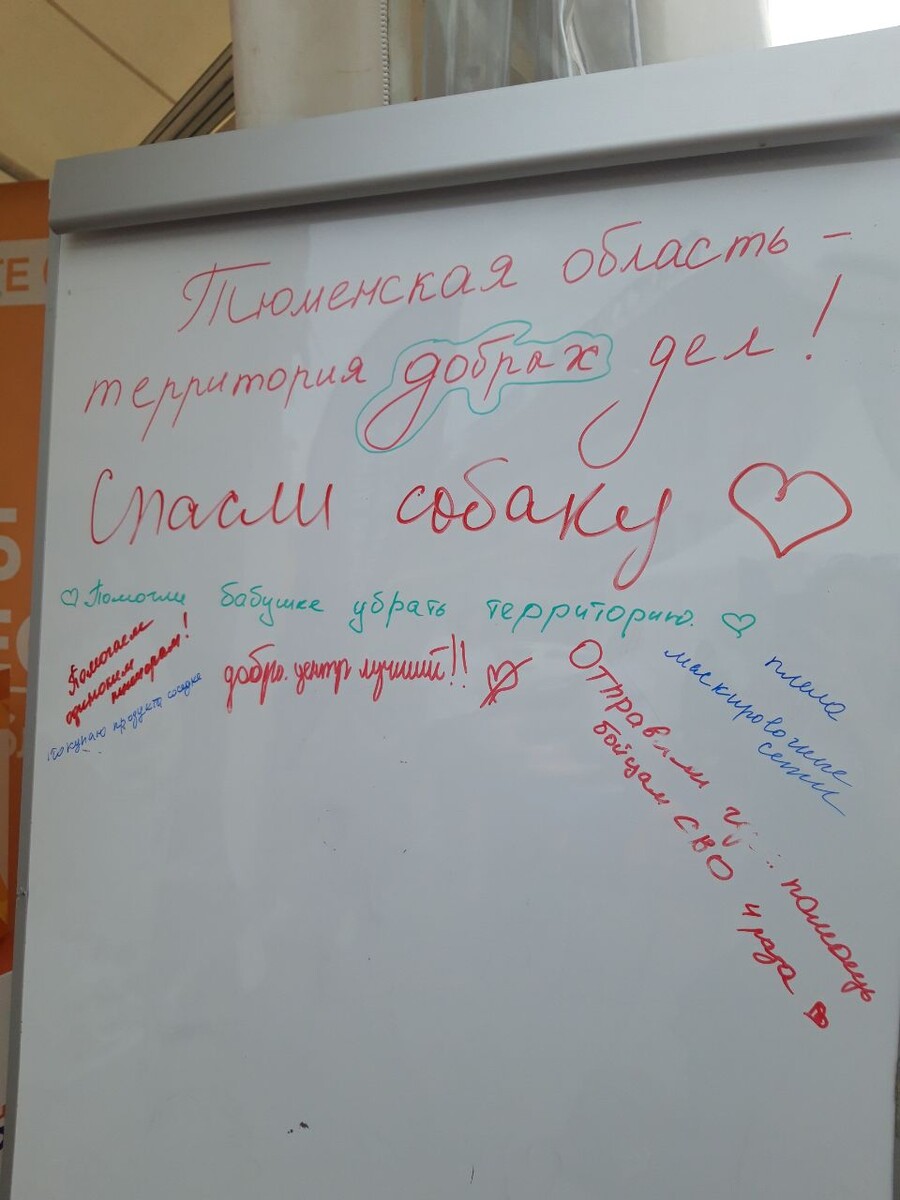 Тюменская область -
территория добрых дел!
Спасли собаку
Помогли бабушке убрать территорию.
Помогаем
одиноким
пенсионерам!
Покупаю продукты соседке
добро.центр лучший!!
плела
маскировочные
сети
Отправили помощь
бойцам СВО 4 раза